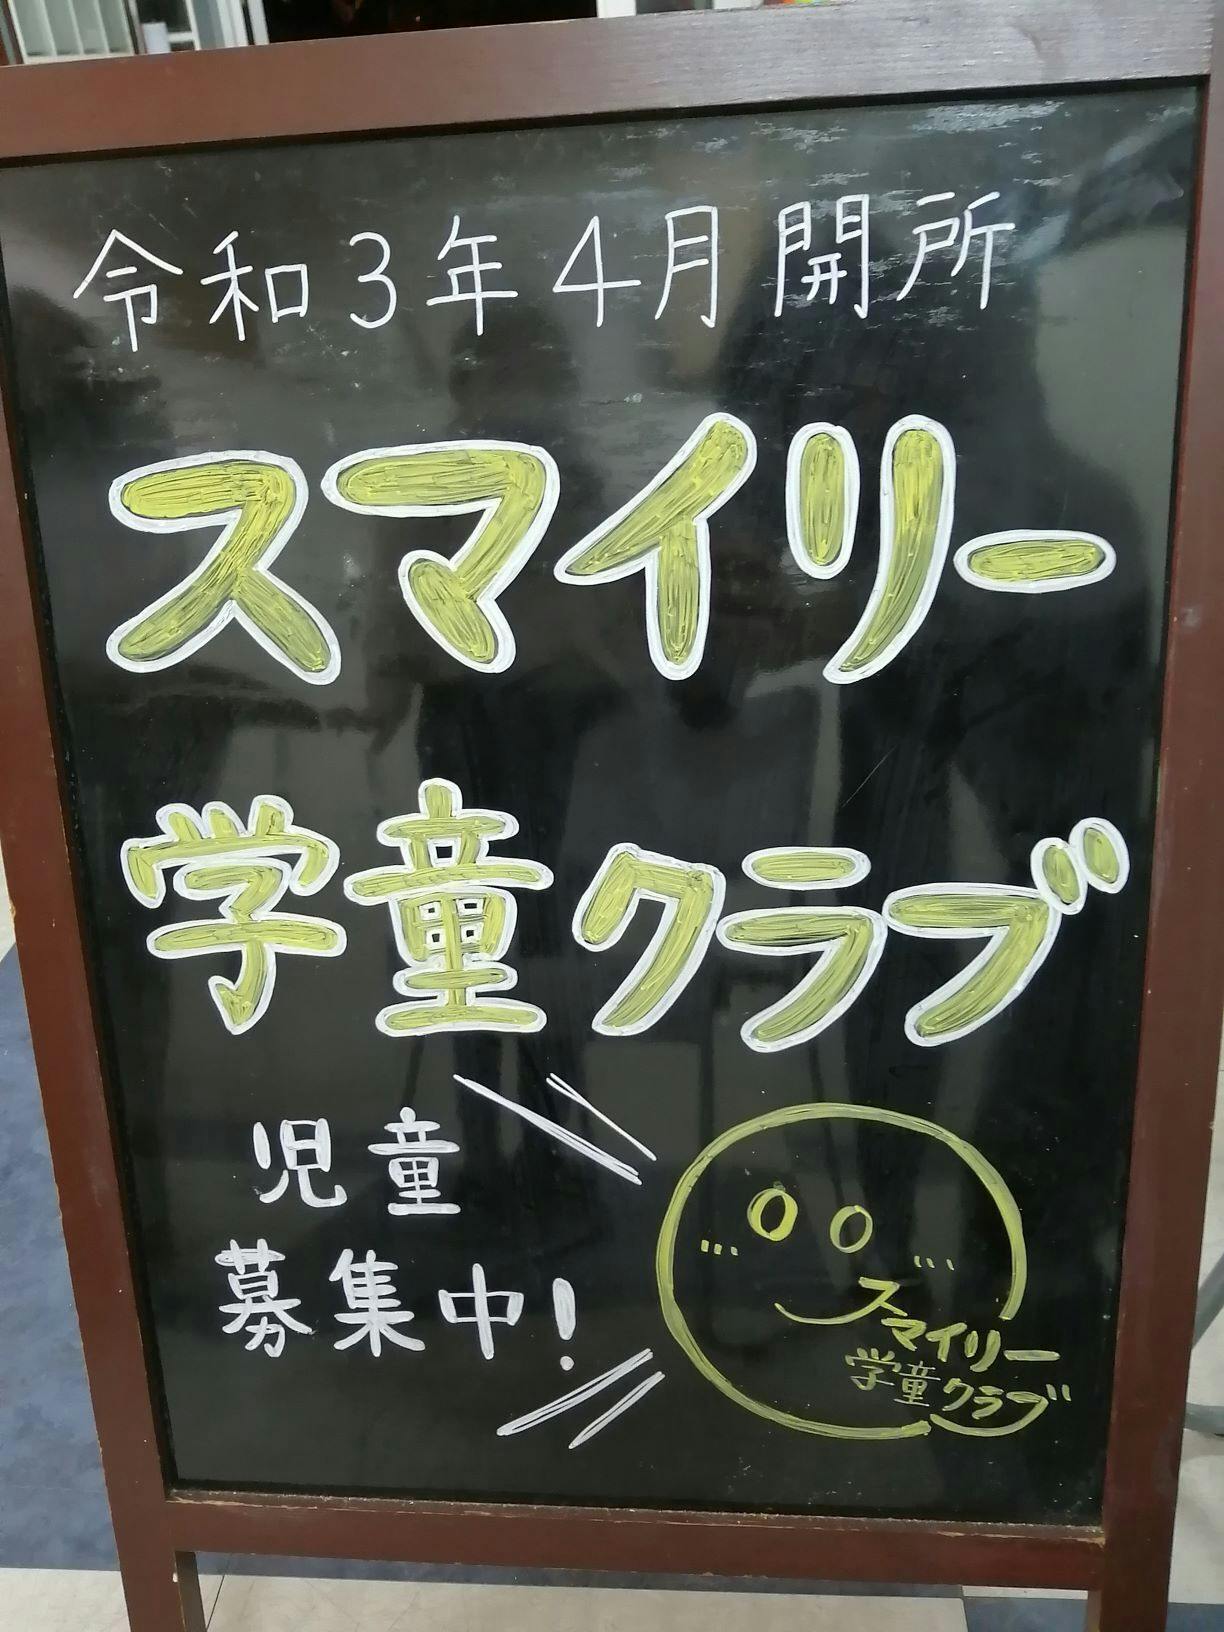 令和3年4月開所
スマイリー
学童クラブ
児童
募集中!
スマイリー
学童クラブ